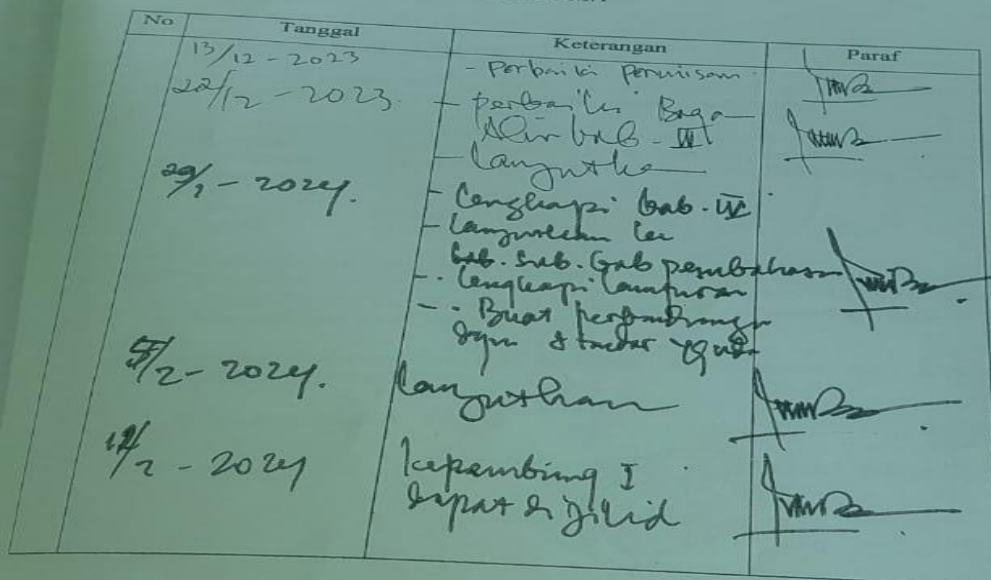 No Tanggal Keterangan Paraf
13/12 - 2023 - Perbaiki penulisan
22/12 - 2023. - perbaiki Baga
Alir bab - III
- Lanjutka
29/1 - 2024. - Lengkapi bab - IV
- Lanjutkan ke
bab. Sub. bab pembahasan
- Lengkapi lampiran
- Buat perbandingan
dgn standar yg ada
5/2 - 2024. Lanjutkan
12/2 - 2024 kepembimg I
dapat di jilid